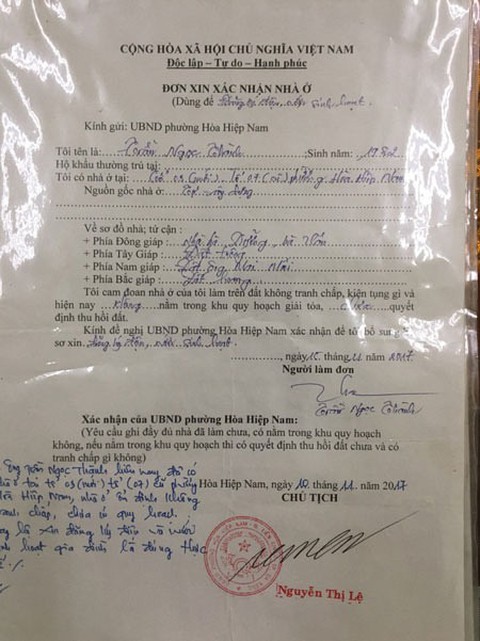 CỘNG HÒA XÃ HỘI CHỦ NGHĨA VIỆT NAM
Độc lập – Tự do – Hanh phúc
ĐƠN XIN XÁC NHẬN NHÀ Ở
(Dùng để đăng ký điện, nước sinh hoạt.
Kính gửi: UBND phường Hòa Hiệp Nam
Tôi tên là: Trần Ngọc Thành Sinh năm:
Hộ khẩu thường trú tại:
Tôi có nhà ở tại: Tổ 03 (mới) Tổ 07 (cũ) phường Hòa Hiệp Nam
Nguồn gốc nhà ở: xây dựng
Về sơ đồ nhà; tứ cận:
+ Phía Đông giáp: Nhà bà
+ Phía Tây Giáp: Đất trống
+ Phía Nam giáp: ông
+ Phía Bắc giáp: Đất
Tôi cam đoan nhà ở của tôi làm trên đất không tranh chấp, kiện tụng gì và
hiện nay không nằm trong khu quy hoạch giải tỏa, chưa quyết
định thu hồi đất.
Kính đề nghị UBND phường Hòa Hiệp Nam xác nhận để tôi bổ sung
sơ xin: đăng ký điện, nước sinh hoạt
, ngày 10 tháng 11 năm 2017
Người làm đơn
Trần Ngọc Thành
Xác nhận của UBND phường Hòa Hiệp Nam:
(Yêu cầu ghi đầy đủ nhà đã làm chưa, có nằm trong khu quy hoạch
không, nếu nằm trong khu quy hoạch thì có quyết định thu hồi đất chưa và có
tranh chấp gì không)
Ông Trần Ngọc Thành hiện nay đã có
ở tại tổ 03 (mới) tổ (07) cũ phường
Hòa Hiệp Nam, nhà ở ổn định không
tranh chấp, chưa có quy hoạch.
là xin đăng ký điện và nước
sinh hoạt gia đình là đúng thực
Hòa Hiệp Nam, ngày 10 tháng 11 năm 2017
CHỦ TỊCH
Nguyễn Thị Lệ